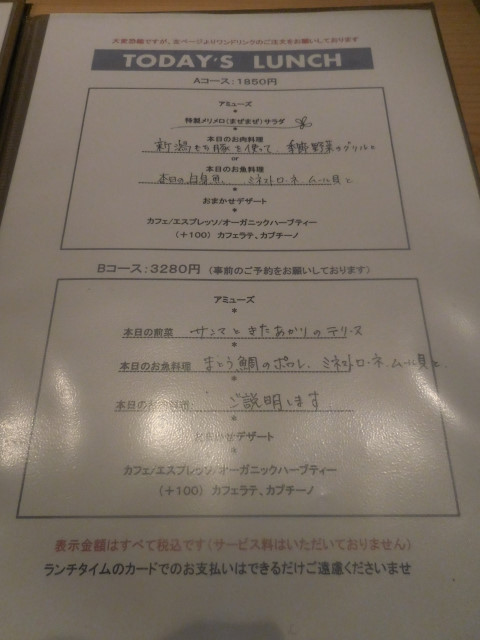 大変恐縮ですが、全ページよりワンドリンクのご注文をお願いしております
TODAY'S LUNCH
Aコース：1850円
アミューズ
*
特製メリメロ(まぜまぜ)サラダ
*
本日のお肉料理
新潟もち豚を使って、季節野菜のグリルと
or
本日のお魚料理
本日の白身魚、ミネストローネ、ムール貝と
*
おまかせデザート
*
カフェ/エスプレッソ/オーガニックハーブティー
(+100) カフェラテ、カプチーノ
Bコース：3280円 (事前のご予約をお願いしております)
アミューズ
*
本日の前菜 サンマときたあかりのテリーヌ
*
本日のお魚料理 まとう鯛のポワレ、ミネストローネ、ムール貝と
*
本日のお肉料理 ご説明します
*
おまかせデザート
*
カフェ/エスプレッソ/オーガニックハーブティー
(+100) カフェラテ、カプチーノ
表示金額はすべて税込です(サービス料はいただいておりません)
ランチタイムのカードでのお支払いはできるだけご遠慮くださいませ